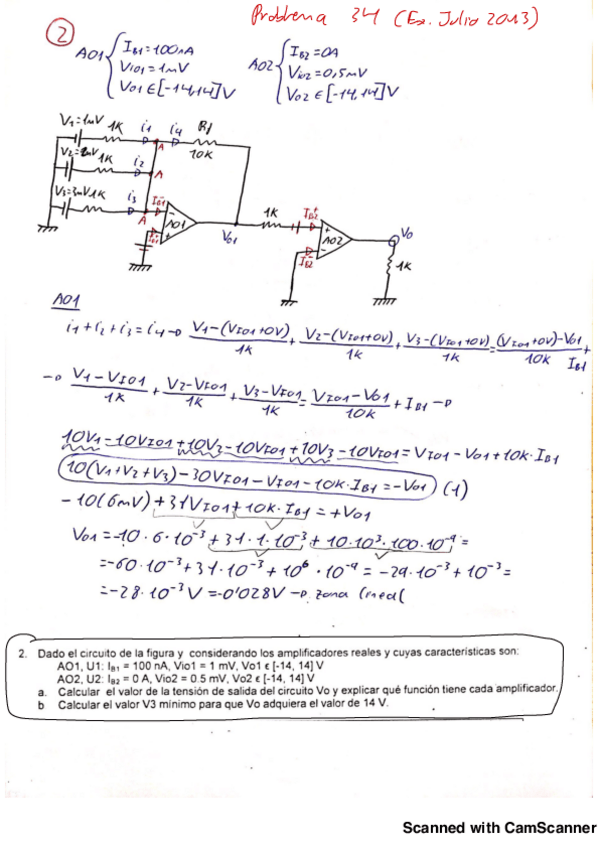 Problema 34 (Ex. Julio 2013)
2
AO1 { IB1=100nA
VIO1=1mV
VO1 ∈[-14,14]V
AO2 { IB2=0A
VIO2=0,5mV
VO2 ∈[-14,14]V
V1=1mV 1K i1 i4 Rf
A 10K
V2=2mV 1K i2
A
V3=3mV 1K i3 IB1-
A - AO1 +
IB1+
VO1
1K IB2+
+ AO2 -
IB2-
VO
1K
AO1
i1+i2+i3=i4 → V1-(VIO1+0V)/1K + V2-(VIO1+0V)/1K + V3-(VIO1+0V)/1K = (VIO1+0V)-VO1/10K + IB1
→ V1-VIO1/1K + V2-VIO1/1K + V3-VIO1/1K = VIO1-VO1/10K + IB1 →
10V1-10VIO1+10V3-10VIO1+10V3-10VIO1=VIO1-VO1+10K·IB1
10(V1+V2+V3)-30VIO1-VIO1-10K·IB1=-VO1 (1)
-10(6mV)+31VIO1+10K·IB1=+VO1
VO1=-10·6·10⁻³+31·1·10⁻³+10·10³·100·10⁻⁹=
=-60·10⁻³+31·10⁻³+10⁶·10⁻⁹=-29·10⁻³+10⁻³=
=-28·10⁻³V=-0'028V → zona lineal
2. Dado el circuito de la figura y considerando los amplificadores reales y cuyas características son:
AO1, U1: IB1 = 100 nA, Vio1 = 1 mV, Vo1 ϵ [-14, 14] V
AO2, U2: IB2 = 0 A, Vio2 = 0.5 mV, Vo2 ϵ [-14, 14] V
a. Calcular el valor de la tensión de salida del circuito Vo y explicar qué función tiene cada amplificador.
b Calcular el valor V3 mínimo para que Vo adquiera el valor de 14 V.
Scanned with CamScanner